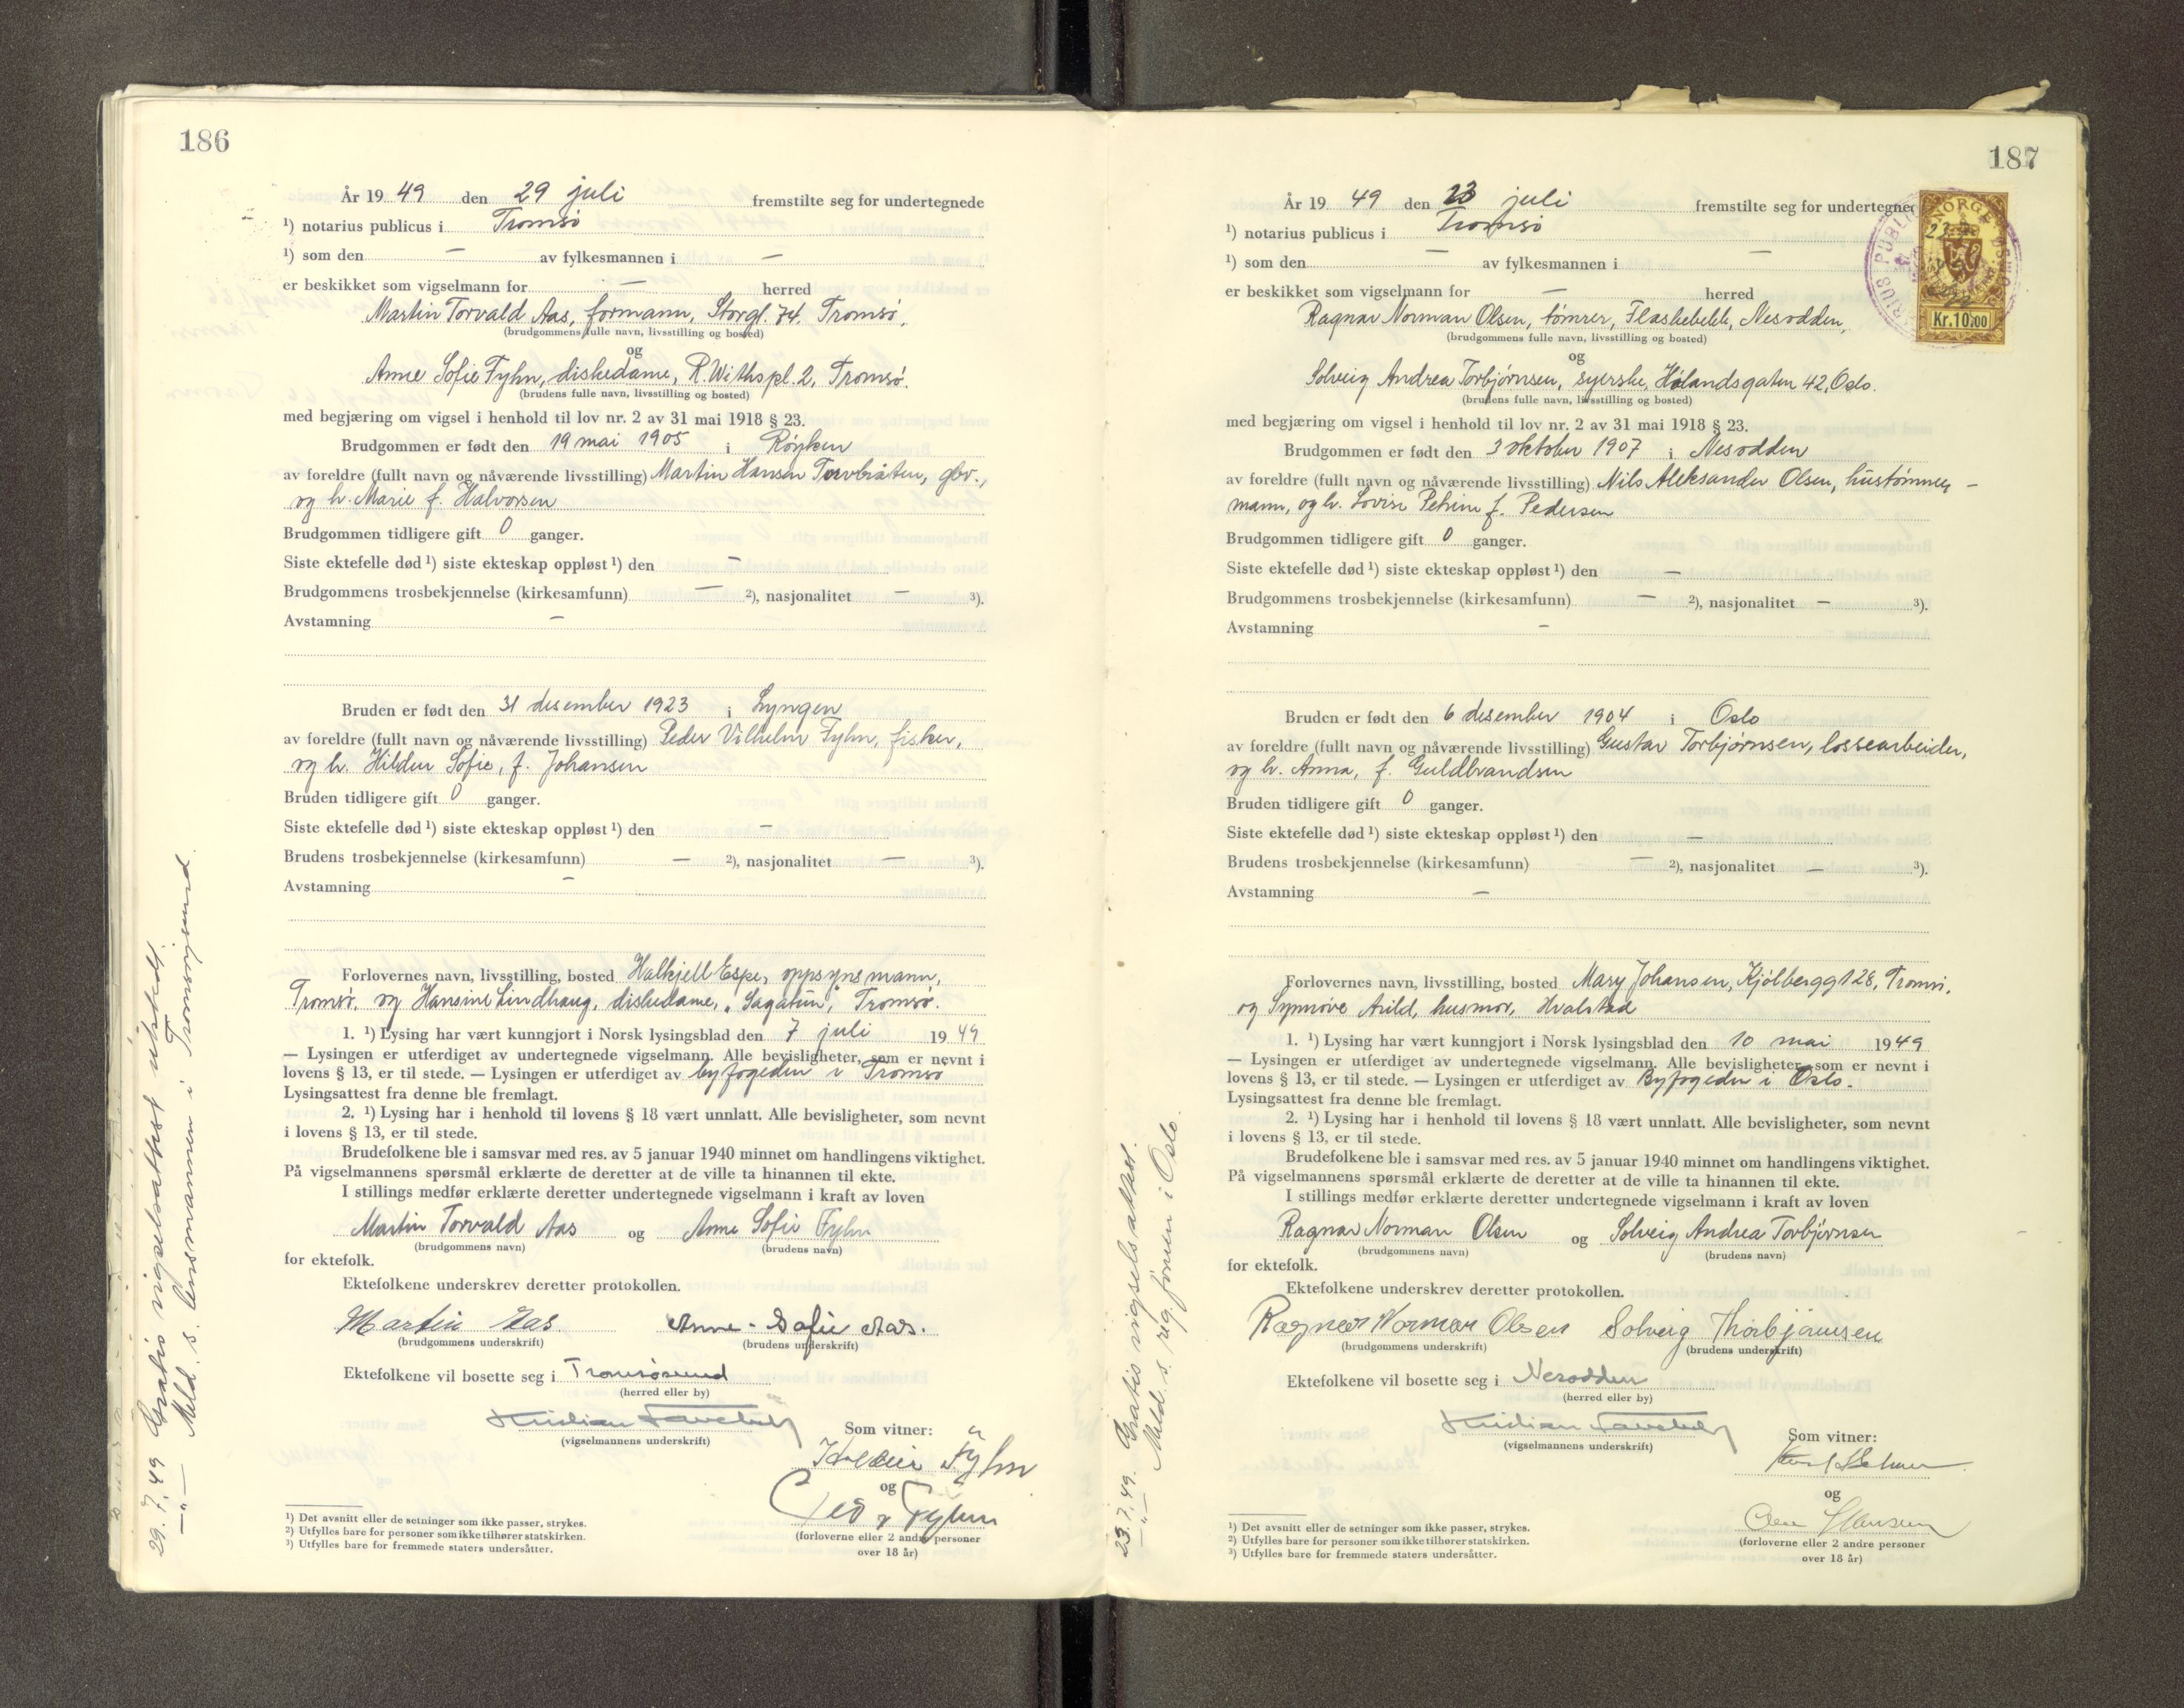 186
År 19 49 den 29 juli fremstilte seg for undertegnede
¹) notarius publicus i Tromsø
¹) som den — av fylkesmannen i —
er beskikket som vigselmann for — herred
Martin Torvald Aas, formann, Storgt. 74. Tromsø,
(brudgommens fulle navn, livsstilling og bosted)
og
Anne Sofie Fyhn, diskedame, R. Withs pl. 2, Tromsø.
(brudens fulle navn, livsstilling og bosted)
med begjæring om vigsel i henhold til lov nr. 2 av 31 mai 1918 § 23.
Brudgommen er født den 19 mai 1905 i Røyken
av foreldre (fullt navn og nåværende livsstilling) Martin Hansen Torvbråten, gbr.,
og h. Marie f. Halvorsen
Brudgommen tidligere gift 0 ganger.
Siste ektefelle død ¹) siste ekteskap oppløst ¹) den —
Brudgommens trosbekjennelse (kirkesamfunn) — ²), nasjonalitet — ³).
Avstamning —
Bruden er født den 31 desember 1923 i Lyngen
av foreldre (fullt navn og nåværende livsstilling) Peder Vilhelm Fyhn, fisker,
og h. Hildur Sofie, f. Johansen
Bruden tidligere gift 0 ganger.
Siste ektefelle død ¹) siste ekteskap oppløst ¹) den —
Brudens trosbekjennelse (kirkesamfunn) — ²), nasjonalitet — ³).
Avstamning —
Forlovernes navn, livsstilling, bosted Halkjell Espe, oppsynsmann,
Tromsø, og Hansine Lindhaug, diskedame, „Sagatun", Tromsø.
1. ¹) Lysing har vært kunngjort i Norsk lysingsblad den 7 juli 19 49
— Lysingen er utferdiget av undertegnede vigselmann. Alle bevisligheter, som er nevnt i
lovens § 13, er til stede. — Lysingen er utferdiget av byfogeden i Tromsø
Lysingsattest fra denne ble fremlagt.
2. ¹) Lysing har i henhold til lovens § 18 vært unnlatt. Alle bevisligheter, som nevnt
i lovens § 13, er til stede.
Brudefolkene ble i samsvar med res. av 5 januar 1940 minnet om handlingens viktighet.
På vigselmannens spørsmål erklærte de deretter at de ville ta hinannen til ekte.
I stillings medfør erklærte deretter undertegnede vigselmann i kraft av loven
Martin Torvald Aas og Anne Sofie Fyhn
(brudgommens navn) (brudens navn)
for ektefolk.
Ektefolkene underskrev deretter protokollen.
Martin Aas. Anne-Sofie Aas.
(brudgommens underskrift) (brudens underskrift)
Ektefolkene vil bosette seg i Tromsøsund
(herred eller by)
Kristian
(vigselmannens underskrift)
Som vitner:
Fyhn
og
Peder Fyhn
(forloverne eller 2 andre personer
over 18 år)
¹) Det avsnitt eller de setninger som ikke passer, strykes.
²) Utfylles bare for personer som ikke tilhører statskirken.
³) Utfylles bare for fremmede staters undersåtter.
29.7.49 Gratis vigselsattest utstedt.
—"— Meld. s. lensmannen i Tromsøysund
187
År 19 49 den 23 juli fremstilte seg for undertegnede
¹) notarius publicus i Tromsø
¹) som den — av fylkesmannen i —
er beskikket som vigselmann for — herred
Ragnar Norman Olsen, tømrer, Flaskebekk, Nesodden,
(brudgommens fulle navn, livsstilling og bosted)
og
Solveig Andrea Torbjørnsen, syerske, Hølandsgaten 42, Oslo.
(brudens fulle navn, livsstilling og bosted)
med begjæring om vigsel i henhold til lov nr. 2 av 31 mai 1918 § 23.
Brudgommen er født den 3 oktober 1907 i Nesodden
av foreldre (fullt navn og nåværende livsstilling) Nils Aleksander Olsen, hustømmer-
mann, og h. Lovise Petrine f. Pedersen
Brudgommen tidligere gift 0 ganger.
Siste ektefelle død ¹) siste ekteskap oppløst ¹) den —
Brudgommens trosbekjennelse (kirkesamfunn) — ²), nasjonalitet — ³).
Avstamning —
Bruden er født den 6 desember 1904 i Oslo
av foreldre (fullt navn og nåværende livsstilling) Gustav Torbjørnsen, lossearbeider,
og h. Anna, f. Guldbrandsen
Bruden tidligere gift 0 ganger.
Siste ektefelle død ¹) siste ekteskap oppløst ¹) den —
Brudens trosbekjennelse (kirkesamfunn) — ²), nasjonalitet — ³).
Avstamning —
Forlovernes navn, livsstilling, bosted Mary Johansen, Kjølbergg 128, Tromsø,
og Synnøve Arild, husmor, Hvalstad
1. ¹) Lysing har vært kunngjort i Norsk lysingsblad den 10 mai 1949
— Lysingen er utferdiget av undertegnede vigselmann. Alle bevisligheter, som er nevnt i
lovens § 13, er til stede. — Lysingen er utferdiget av Byfogeden i Oslo.
Lysingsattest fra denne ble fremlagt.
2. ¹) Lysing har i henhold til lovens § 18 vært unnlatt. Alle bevisligheter, som nevnt
i lovens § 13, er til stede.
Brudefolkene ble i samsvar med res. av 5 januar 1940 minnet om handlingens viktighet.
På vigselmannens spørsmål erklærte de deretter at de ville ta hinannen til ekte.
I stillings medfør erklærte deretter undertegnede vigselmann i kraft av loven
Ragnar Norman Olsen og Solveig Andrea Torbjørnsen
(brudgommens navn) (brudens navn)
for ektefolk.
Ektefolkene underskrev deretter protokollen.
Ragnar Norman Olsen Solveig Thorbjørnsen
(brudgommens underskrift) (brudens underskrift)
Ektefolkene vil bosette seg i Nesodden
(herred eller by)
Kristian
(vigselmannens underskrift)
Som vitner:
og
Hansen
(forloverne eller 2 andre personer
over 18 år)
¹) Det avsnitt eller de setninger som ikke passer, strykes.
²) Utfylles bare for personer som ikke tilhører statskirken.
³) Utfylles bare for fremmede staters undersåtter.
23.7.49. Gratis vigselsattest.
—"— Meld. s. reg. føreren i Oslo.
NORGE
Kr.10.00